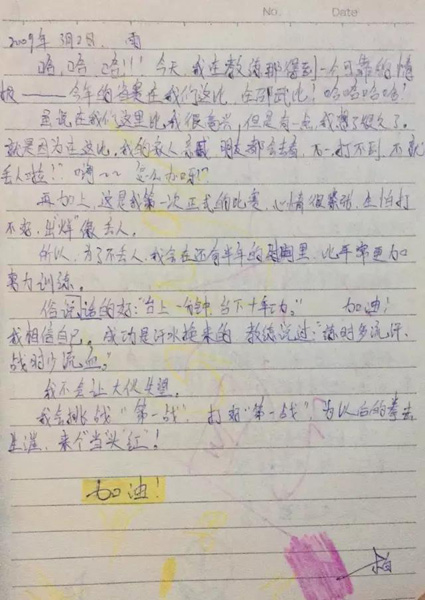 No.  Date
2009年 3月2日. 雨
哈,哈,哈!!! 今天,我在教练那得到一个可靠的情
报——今年的省赛在我们这比,在邵武比!哈哈哈哈!
虽说在我们这里比,我很高兴,但是有一点,我想了很久了.
就是因为在这比,我的家人亲戚 朋友都会去看,万一打不到,不就
丢人啦!
再加上,这是我第一次正式的比赛,心情很紧张,生怕打
不好,出“烊”像丢人.
所以,为了不丢人,我会在还有半年的时间里,比平常更加
努力训练.
俗说话的好:“台上一分钟,台下十年功.” 加油!
我相信自己,成功是汗水换来的 教练说过:“练时多流汗,
战时少流血.”
我不会让大伙失望.
我会挑战“第一战”,打好“第一战”,为以后的拳击
生涯,来个“当头红”!
加油!